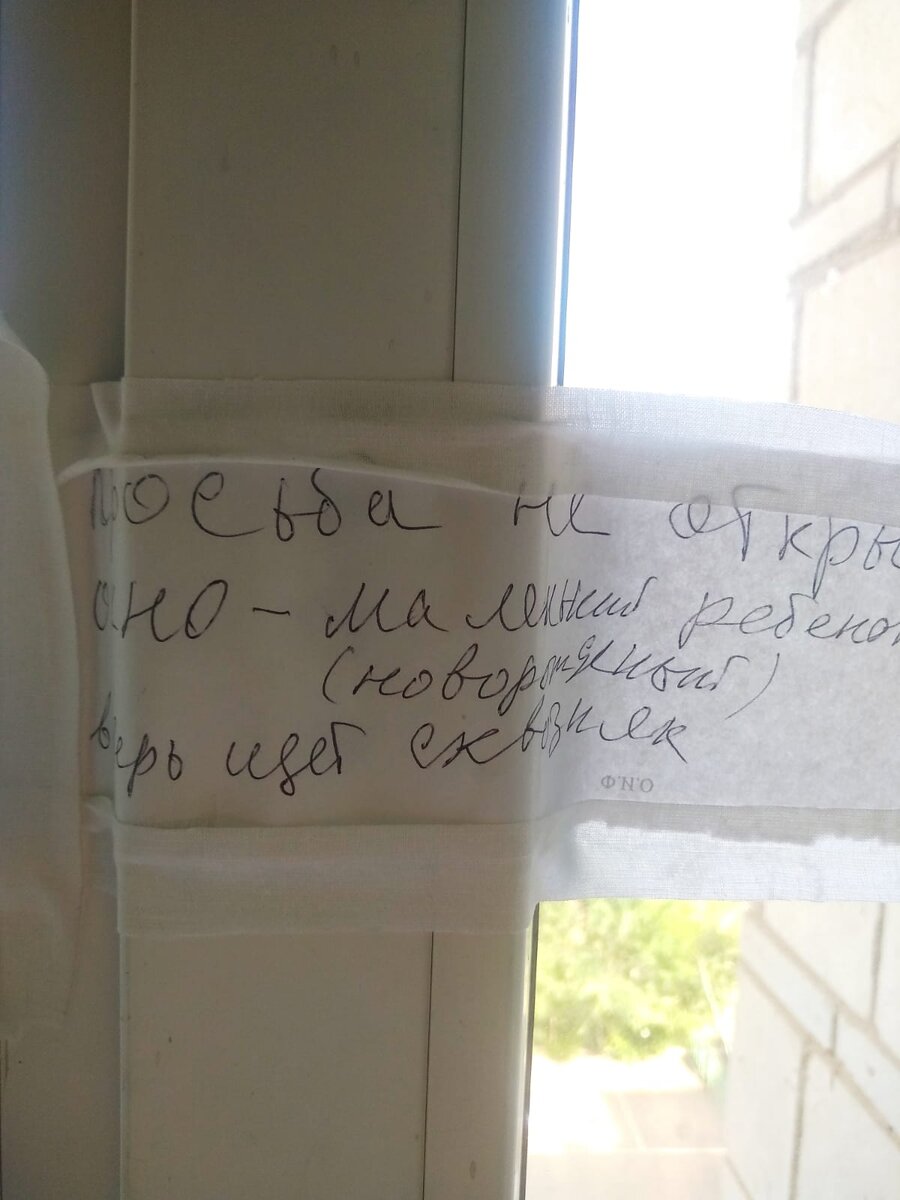 Просьба не откры
окно - маленький ребенок
(новорожденный)
верь идет сквозняк
Ф.И.О